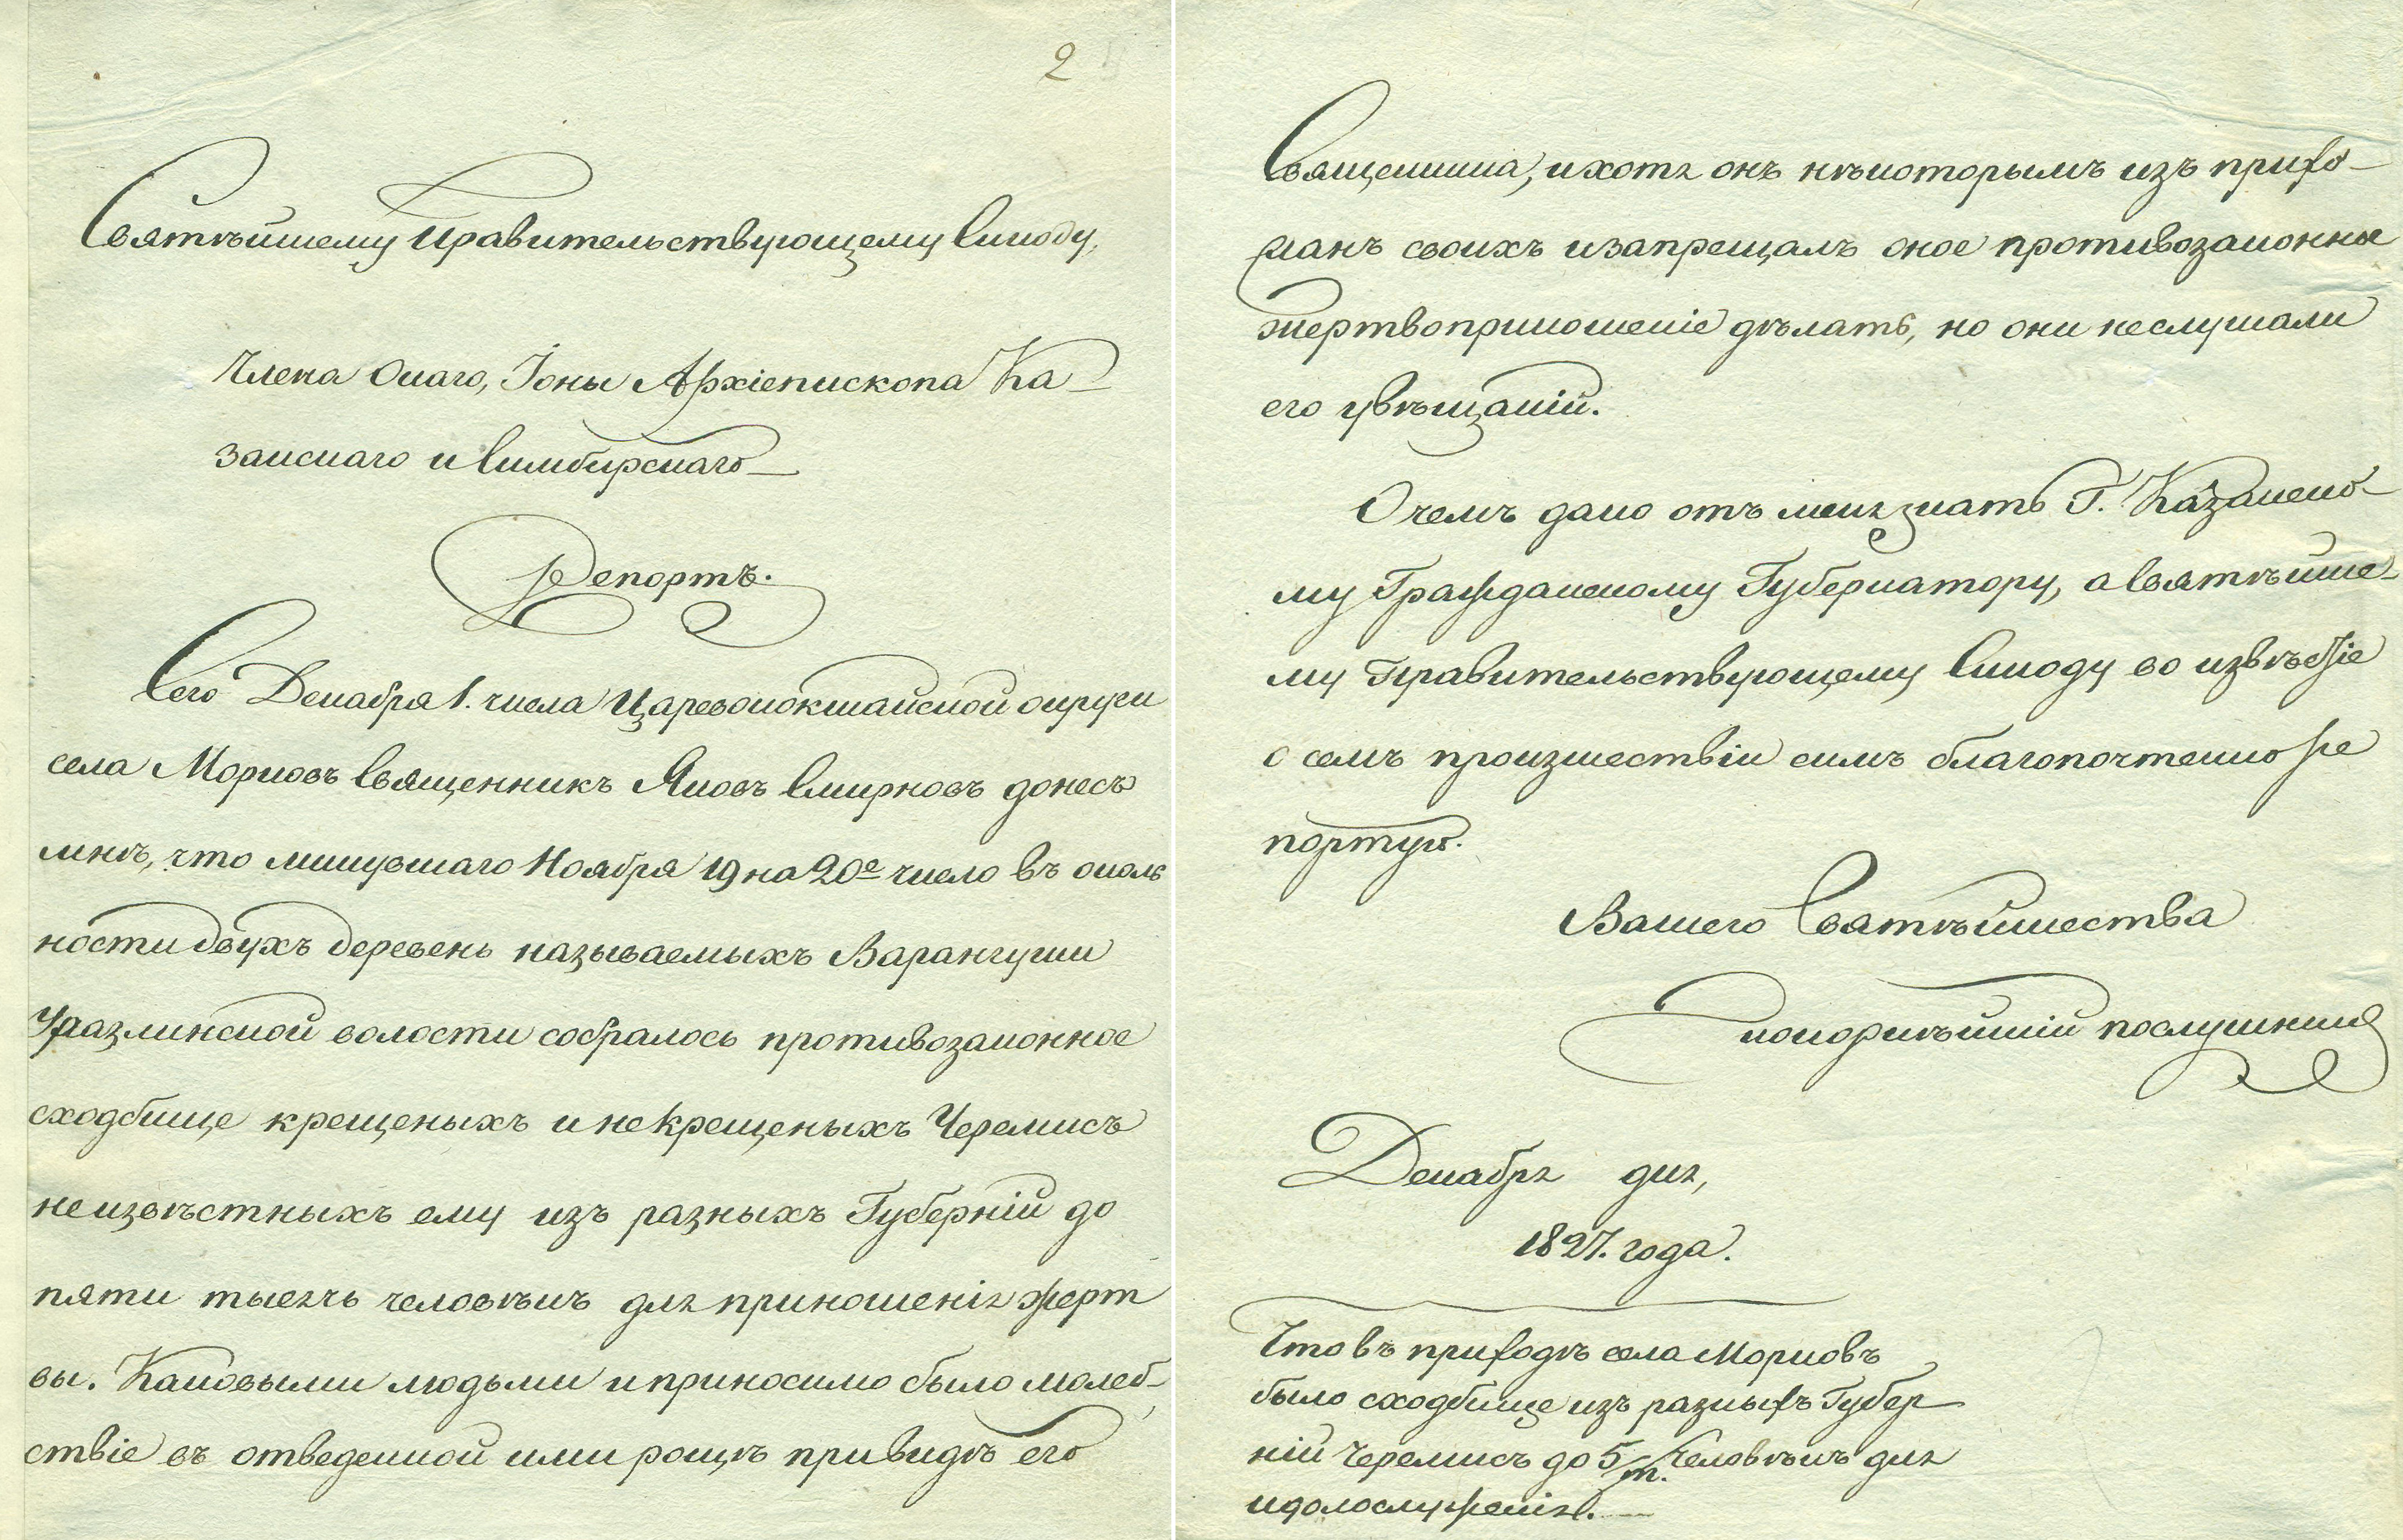 2
Святѣйшему Правительствующему Синоду,
Члена Онаго, Іоны Архіепископа Ка-
занскаго и Симбирскаго
Репортъ.
Сего Декабря 1. числа Царевококшайской округи
села Морковъ Священникъ Яковъ Смирновъ донесъ
мнѣ, что минувшаго Ноября 19 на 20е число въ околь
ности двухъ деревень называемыхъ Варангуши
Уразлинской волости собралось противозаконное
сходбище крещеныхъ и некрещеныхъ Черемисъ
неизвѣстныхъ ему изъ разныхъ Губерній до
пяти тысячь человѣкъ для приношенія жерт
вы. Каковыми людьми и приносимо было молеб-
ствіе въ отведенной ими рощѣ при видѣ его
Священника, и хотя онъ нѣкоторымъ изъ прихо-
жанъ своихъ и запрещалъ оное противозаконное
жертвоприношеніе дѣлать, но они неслушали
его увѣщаній.
О чемъ дано отъ меня знать Г. Казанско-
му Гражданскому Губернатору, а Святѣйше-
му Правительствующему Синоду во извѣстіе
о семъ произшествіи симъ благопочтенно ре
портую.
Вашего Святѣйшества
покорнѣйшій послушникъ
Декабря дня,
1827. года.
Что въ приходѣ села Морковъ
было сходбище изъ разныхъ Губер
ній Черемисъ до 5/т. Человѣкъ для
идолослуженія.